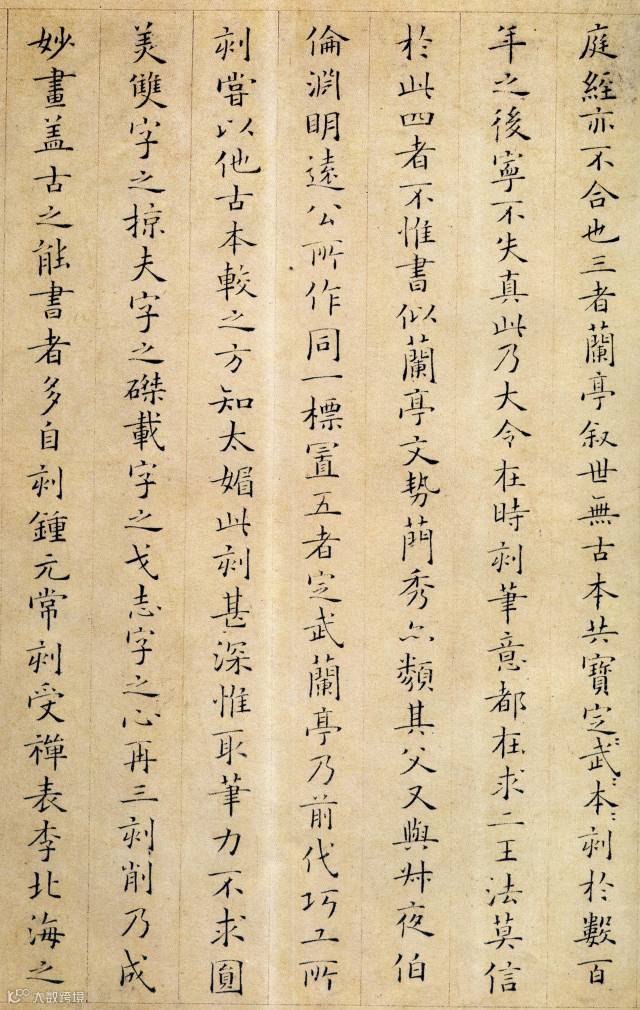 庭經亦不合也三者蘭亭叙世無古本共寶定武本刻於數百
年之後寧不失真此乃大令在時刻筆意都在求二王法莫信
於此四者不惟書似蘭亭文勢蕳秀亦類其父又與叔夜伯
倫淵明遠公所作同一標置五者定武蘭亭乃前代巧工所
刻嘗以他古本較之方知太媚此刻甚深惟取筆力不求圓
美雙字之掠夫字之磔載字之戈志字之心再三刻削乃成
妙畫盖古之能書者多自刻鍾元常刻受禪表李北海之
大数跨境